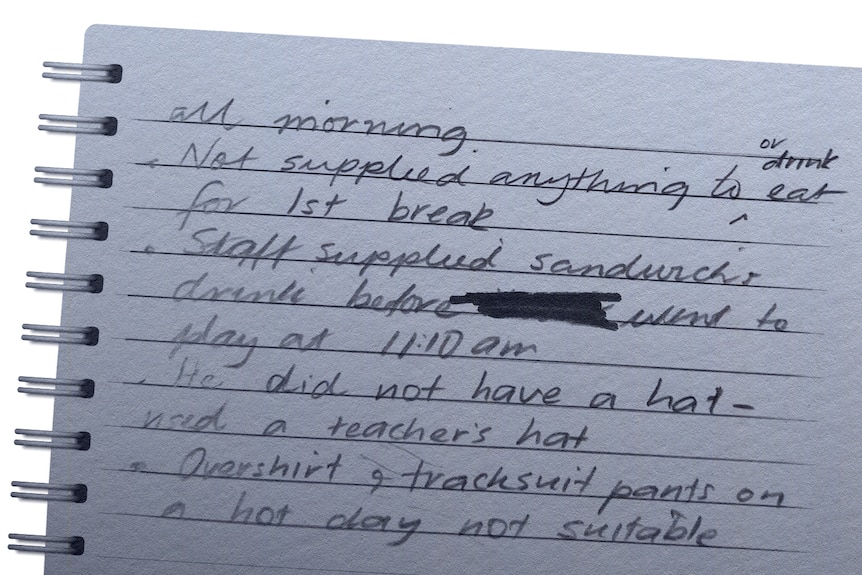 all morning.
• Not supplied anything to eat or drink
for 1st break
• Staff supplied sandwich &
drink before went to
play at 11:10 am
• He did not have a hat -
used a teacher's hat
• Overshirt & tracksuit pants on
a hot day not suitable